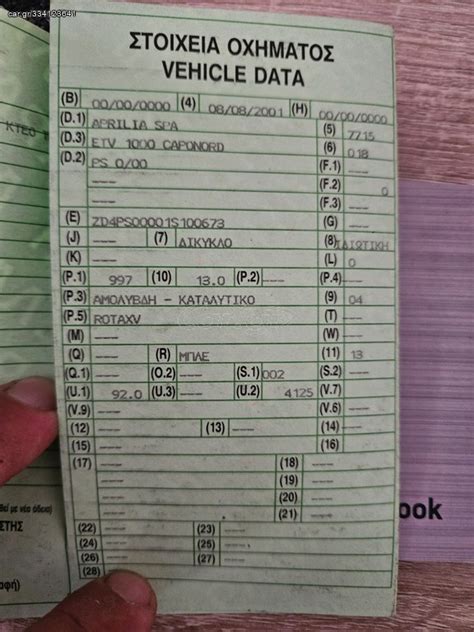 car.gr/334123641
ΣΤΟΙΧΕΙΑ ΟΧΗΜΑΤΟΣ
VEHICLE DATA
(B) 00/00/0000 (4) 08/08/2001 (H) 00/00/0000
(D.1) APRILIA SPA (5) 7715
(D.3) ETV 1000 CAPONORD (6) 018
(D.2) PS 0/00 (F.1) ----
---- (F.2) 0
---- (F.3) ----
(E) ZD4PS00001S100673 (G) ----
(J) ---- (7) ΔΙΚΥΚΛΟ (8) ΙΔΙΩΤΙΚΗ
(K) ---- (L) 0
(P.1) 997 (10) 13.0 (P.2) ---- (P.4) ----
(P.3) ΑΜΟΛΥΒΔΗ - ΚΑΤΑΛΥΤΙΚΟ (9) 04
(P.5) ROTAXV (T) ----
(M) ---- (W) ----
(Q) ---- (R) ΜΠΛΕ (11) 13
(Q.1) ---- (O.2) ---- (S.1) 002 (S.2) ----
(U.1) 92.0 (U.3) ---- (U.2) 4125 (V.7) ----
(V.9) ---- (V.6) ----
(12) ---- (13) ---- (14) ----
(15) ---- (16) ----
(17) ---- (18) ----
---- (19) ----
---- (20) ----
---- (21) ----
(22) ---- (23) ----
(24) ---- (25) ----
(26) ---- (27) ----
(28) ----
ΚΤΕΟ
με νέα άδεια)
ΕΤΗΣ
ook